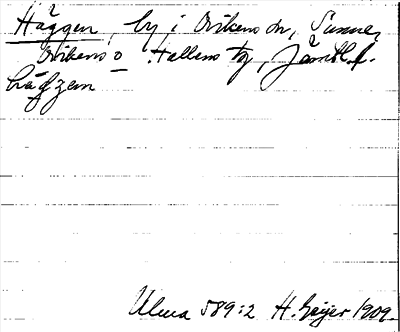 Häggen, by i Ovikens sn, Sunne,
Ovikens o Hallens tg, Jämtl. l.
Ulma 589:2 H. Geijer 1909.